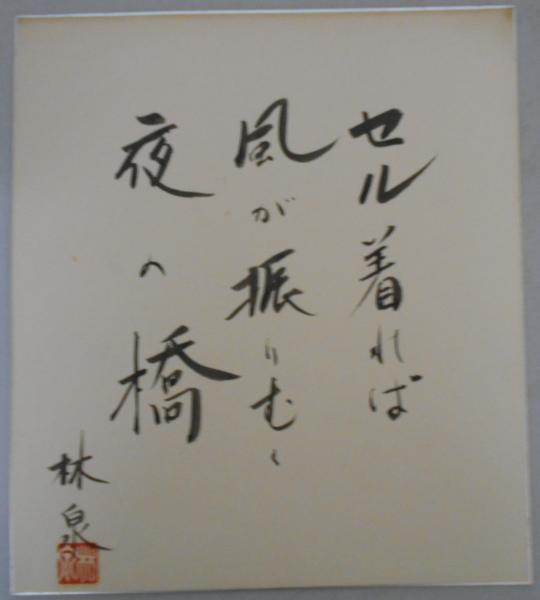 セル着れば
風が振りむく
夜の橋
林泉